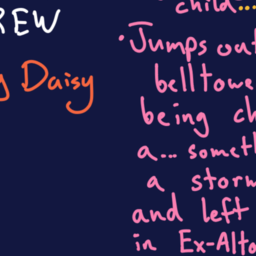 REW
g Daisy
child...
• Jumps out
belltowe
being ch
a... somet
a storm
and left
in Ex-Alto